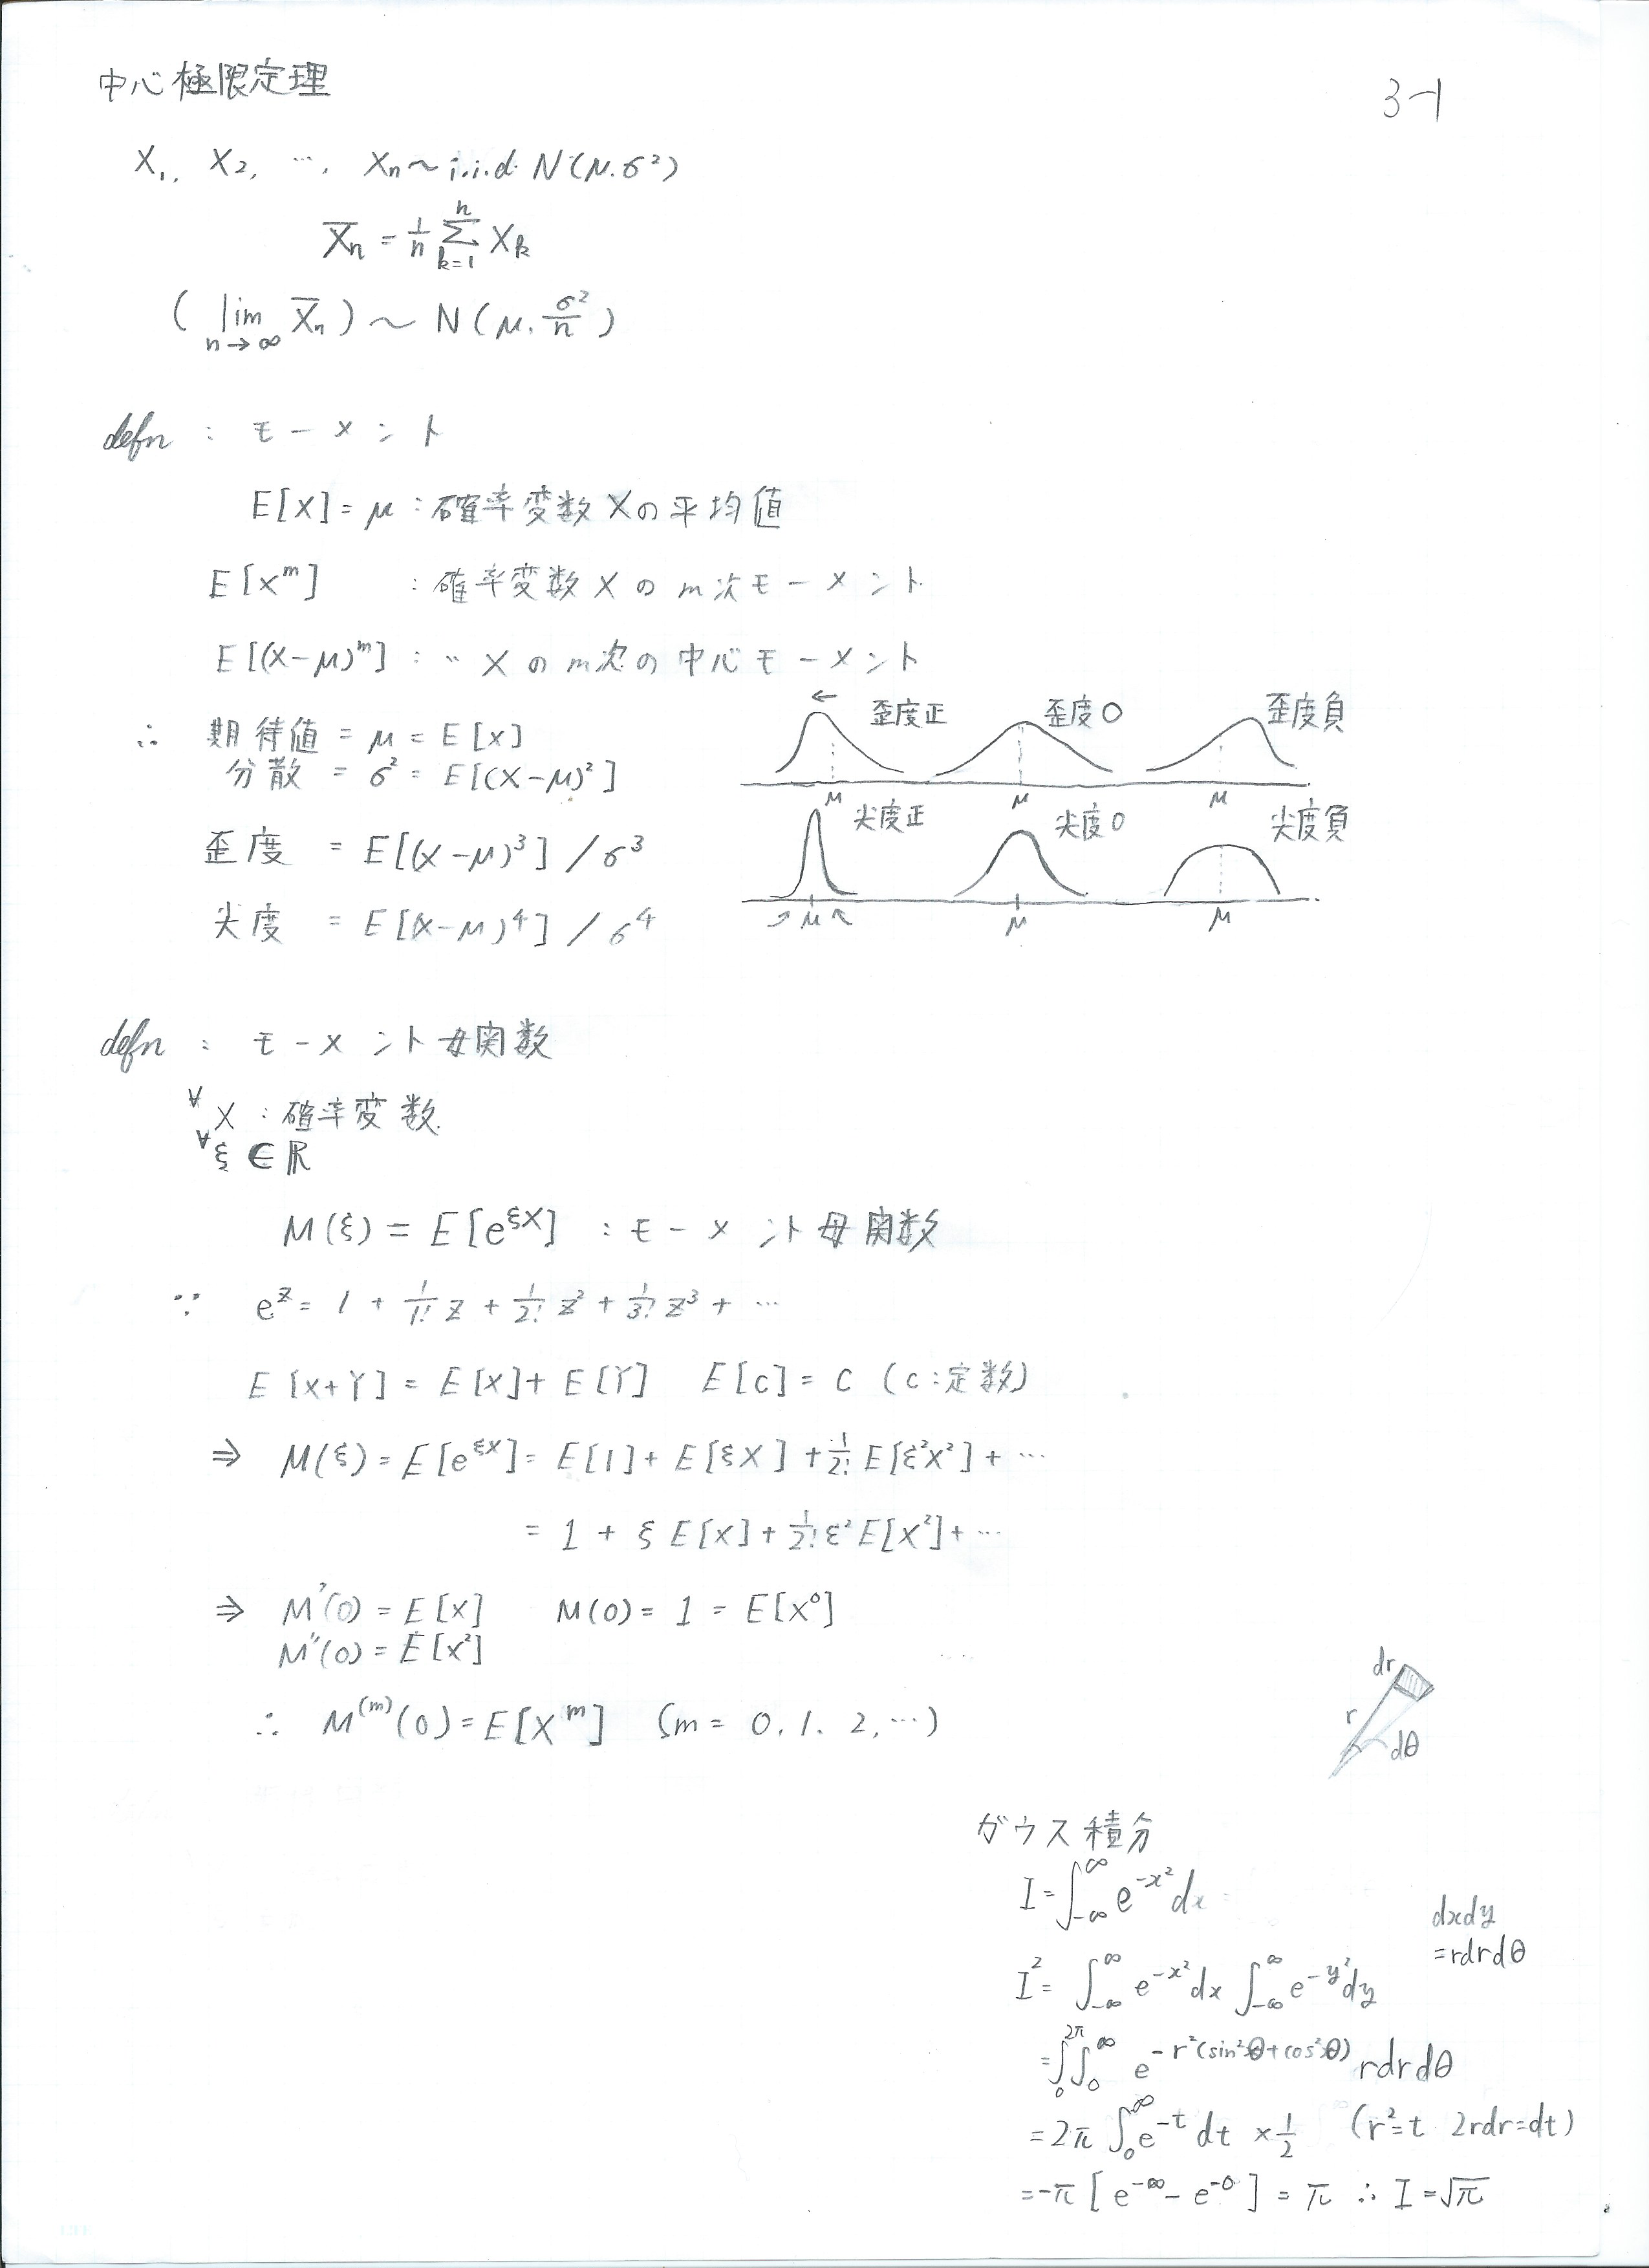 中心極限定理
3-1
X₁, X₂, …, Xn ~ i.i.d. N(μ, σ²)
X̄n = 1/n Σ_{k=1}^{n} Xk
( lim_{n→∞} X̄n ) ~ N(μ, σ²/n)
defn : モーメント
E[X] = μ : 確率変数Xの平均値
E[X^m] : 確率変数Xのm次モーメント
E[(X-μ)^m] : 〃 Xのm次の中心モーメント
∴ 期待値 = μ = E[X]
分散 = σ² = E[(X-μ)²]
歪度 = E[(X-μ)³] / σ³
尖度 = E[(X-μ)⁴] / σ⁴
← 歪度正 歪度0 歪度負
μ μ μ
尖度正 尖度0 尖度負
μ μ μ
defn : モーメント母関数
∀X : 確率変数
∀ξ ∈ ℝ
M(ξ) = E[e^{ξX}] : モーメント母関数
∵ e^z = 1 + 1/1! z + 1/2! z² + 1/3! z³ + …
E[X+Y] = E[X] + E[Y] E[c] = c (c:定数)
⇒ M(ξ) = E[e^{ξX}] = E[1] + E[ξX] + 1/2! E[ξ²X²] + …
= 1 + ξE[X] + 1/2! ξ²E[X²] + …
⇒ M'(0) = E[X] M(0) = 1 = E[X⁰]
M''(0) = E[X²]
∴ M^{(m)}(0) = E[X^m] (m = 0, 1, 2, …)
dr
r
dθ
ガウス積分
I = ∫_{-∞}^{∞} e^{-x²} dx
dxdy
= rdrdθ
I² = ∫_{-∞}^{∞} e^{-x²} dx ∫_{-∞}^{∞} e^{-y²} dy
= ∫_0^{2π} ∫_0^∞ e^{-r²(sin²θ+cos²θ)} rdrdθ
= 2π ∫_0^∞ e^{-t} dt × 1/2 (r²=t 2rdr=dt)
= -π [ e^{-∞} - e^{-0} ] = π ∴ I = √π